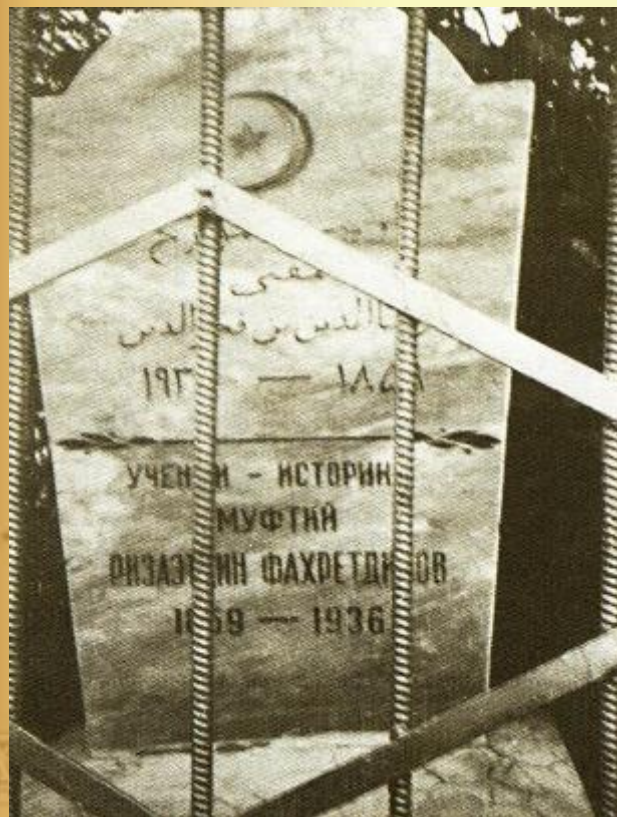 مفتى
رضاالدين بن فخرالدين
١٨٥٩ —
УЧЕНЫЙ - ИСТОРИК
МУФТИЙ
РИЗАЭТДИН ФАХРЕТДИНОВ
1859 — 1936